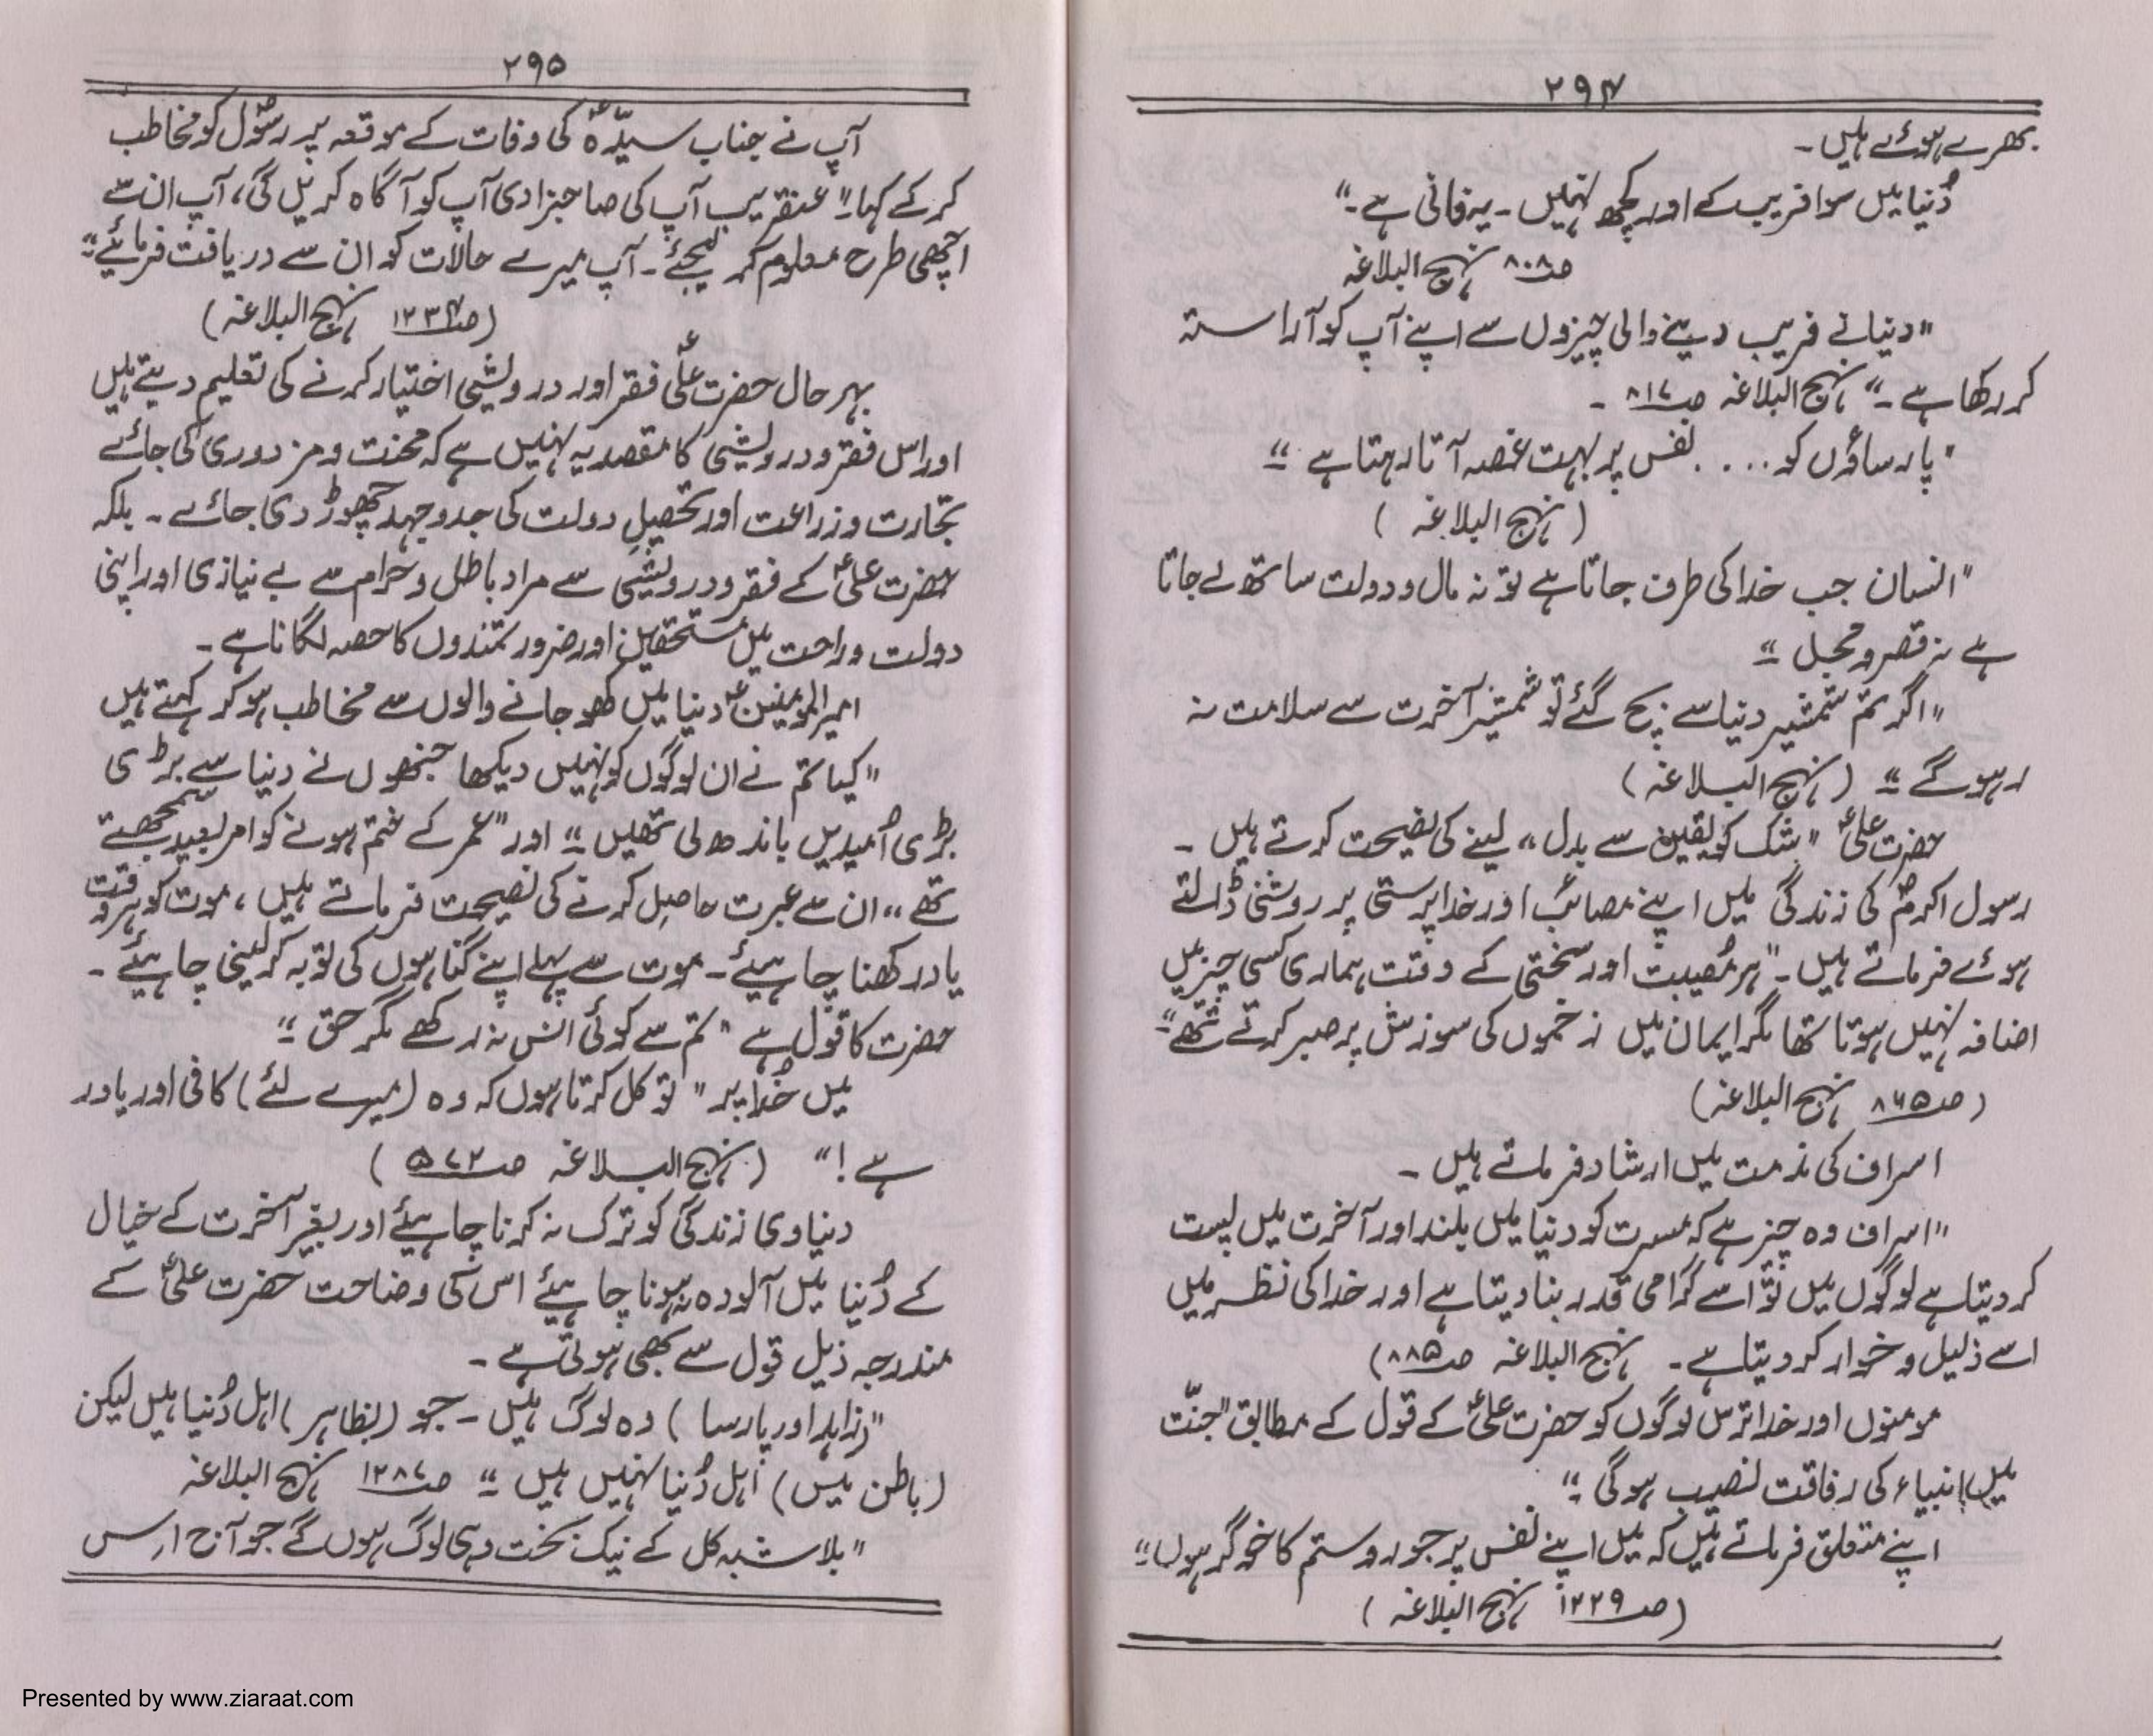 ۲۹۴
بھرے ہوئے ہیں۔
دُنیا میں سوا فریب کے اور کچھ نہیں۔ یہ فانی ہے۔"
صـ۸۰۸ نہج البلاغہ
"دنیا نے فریب دینے والی چیزوں سے اپنے آپ کو آراستہ
کر رکھا ہے۔" نہج البلاغہ صـ۸۱۷ ۔
"پارساؤں کو .... نفس پر بہت غصہ آتا رہتا ہے"
(نہج البلاغہ)
"انسان جب خدا کی طرف جاتا ہے تو نہ مال و دولت ساتھ لے جاتا
ہے نہ قصر و محل"
"اگر تم شمشیر دنیا سے بچ گئے تو شمشیر آخرت سے سلامت نہ
رہو گے" (نہج البلاغہ)
حضرت علیؑ "شک کو یقین سے بدل" لینے کی نصیحت کرتے ہیں۔
رسول اکرمؐ کی زندگی میں اپنے مصائب اور خدا پرستی پر روشنی ڈالتے
ہوئے فرماتے ہیں۔ "ہر مُصیبت اور سختی کے وقت ہماری کسی چیز میں
اضافہ نہیں ہوتا تھا مگر ایمان میں زخموں کی سوزش پر صبر کرتے تھے"
(صـ۸۶۵ نہج البلاغہ)
اسراف کی مذمت میں ارشاد فرماتے ہیں۔
"اسراف وہ چیز ہے کہ مسرت کو دنیا میں بلند اور آخرت میں پست
کر دیتا ہے لوگوں میں تو اسے گرامی قدر بنا دیتا ہے اور خدا کی نظر میں
اسے ذلیل و خوار کر دیتا ہے۔ نہج البلاغہ صـ۸۸۵)
مومنوں اور خدا ترس لوگوں کو حضرت علیؑ کے قول کے مطابق "جنّت
میں انبیاء کی رفاقت نصیب ہوگی"
اپنے متعلق فرماتے ہیں کہ میں اپنے نفس پر جور و ستم کا خوگر ہوں"
(صـ۱۲۲۹ نہج البلاغہ)
۲۹۵
آپ نے جناب سیّدہؑ کی وفات کے موقعہ پر رسُولؐ کو مخاطب
کر کے کہا۔ "عنقریب آپ کی صاحبزادی آپ کو آگاہ کریں گی، آپ ان سے
اچھی طرح معلوم کر لیجئے۔ آپ میرے حالات کو ان سے دریافت فرمائیے"
(صـ۱۲۳۴ نہج البلاغہ)
بہر حال حضرت علیؑ فقر اور درویشی اختیار کرنے کی تعلیم دیتے ہیں
اور اس فقر و درویشی کا مقصد یہ نہیں ہے کہ محنت و مزدوری کی جائے
تجارت و زراعت اور تحصیلِ دولت کی جدوجہد چھوڑ دی جائے۔ بلکہ
حضرت علیؑ کے فقر و درویشی سے مراد باطل و حرام سے بے نیازی اور اپنی
دولت و راحت میں مستحقین اور ضرورتمندوں کا حصہ لگانا ہے۔
امیر المومنینؑ دنیا میں کھو جانے والوں سے مخاطب ہو کر کہتے ہیں
"کیا تم نے ان لوگوں کو نہیں دیکھا جنھوں نے دنیا سے بڑی
بڑی اُمیدیں باندھ لی تھیں" اور "عمر کے ختم ہونے کو امر بعید سمجھتے
تھے" ان سے عبرت حاصل کرنے کی نصیحت فرماتے ہیں، موت کو ہر وقت
یاد رکھنا چاہیئے۔ موت سے پہلے اپنے گناہوں کی توبہ کر لینی چاہیئے۔
حضرت کا قول ہے "تم سے کوئی انس نہ رکھے مگر حق"
میں خُدا پر "توکل کرتا ہوں کہ وہ (میرے لئے) کافی اور یاور
ہے!" (نہج البلاغہ صـ۵۷۲)
دنیاوی زندگی کو ترک نہ کرنا چاہیئے اور بغیر آخرت کے خیال
کے دُنیا میں آلودہ نہ ہونا چاہیئے اس کی وضاحت حضرت علیؑ کے
مندرجہ ذیل قول سے بھی ہوتی ہے۔
"(زاہد اور پارسا) وہ لوگ ہیں۔ جو (بظاہر) اہل دُنیا ہیں لیکن
(باطن میں) اہل دُنیا نہیں ہیں" صـ۱۲۸۷ نہج البلاغہ
"بلاشبہ کل کے نیک بخت وہی لوگ ہوں گے جو آج اس
Presented by www.ziaraat.com